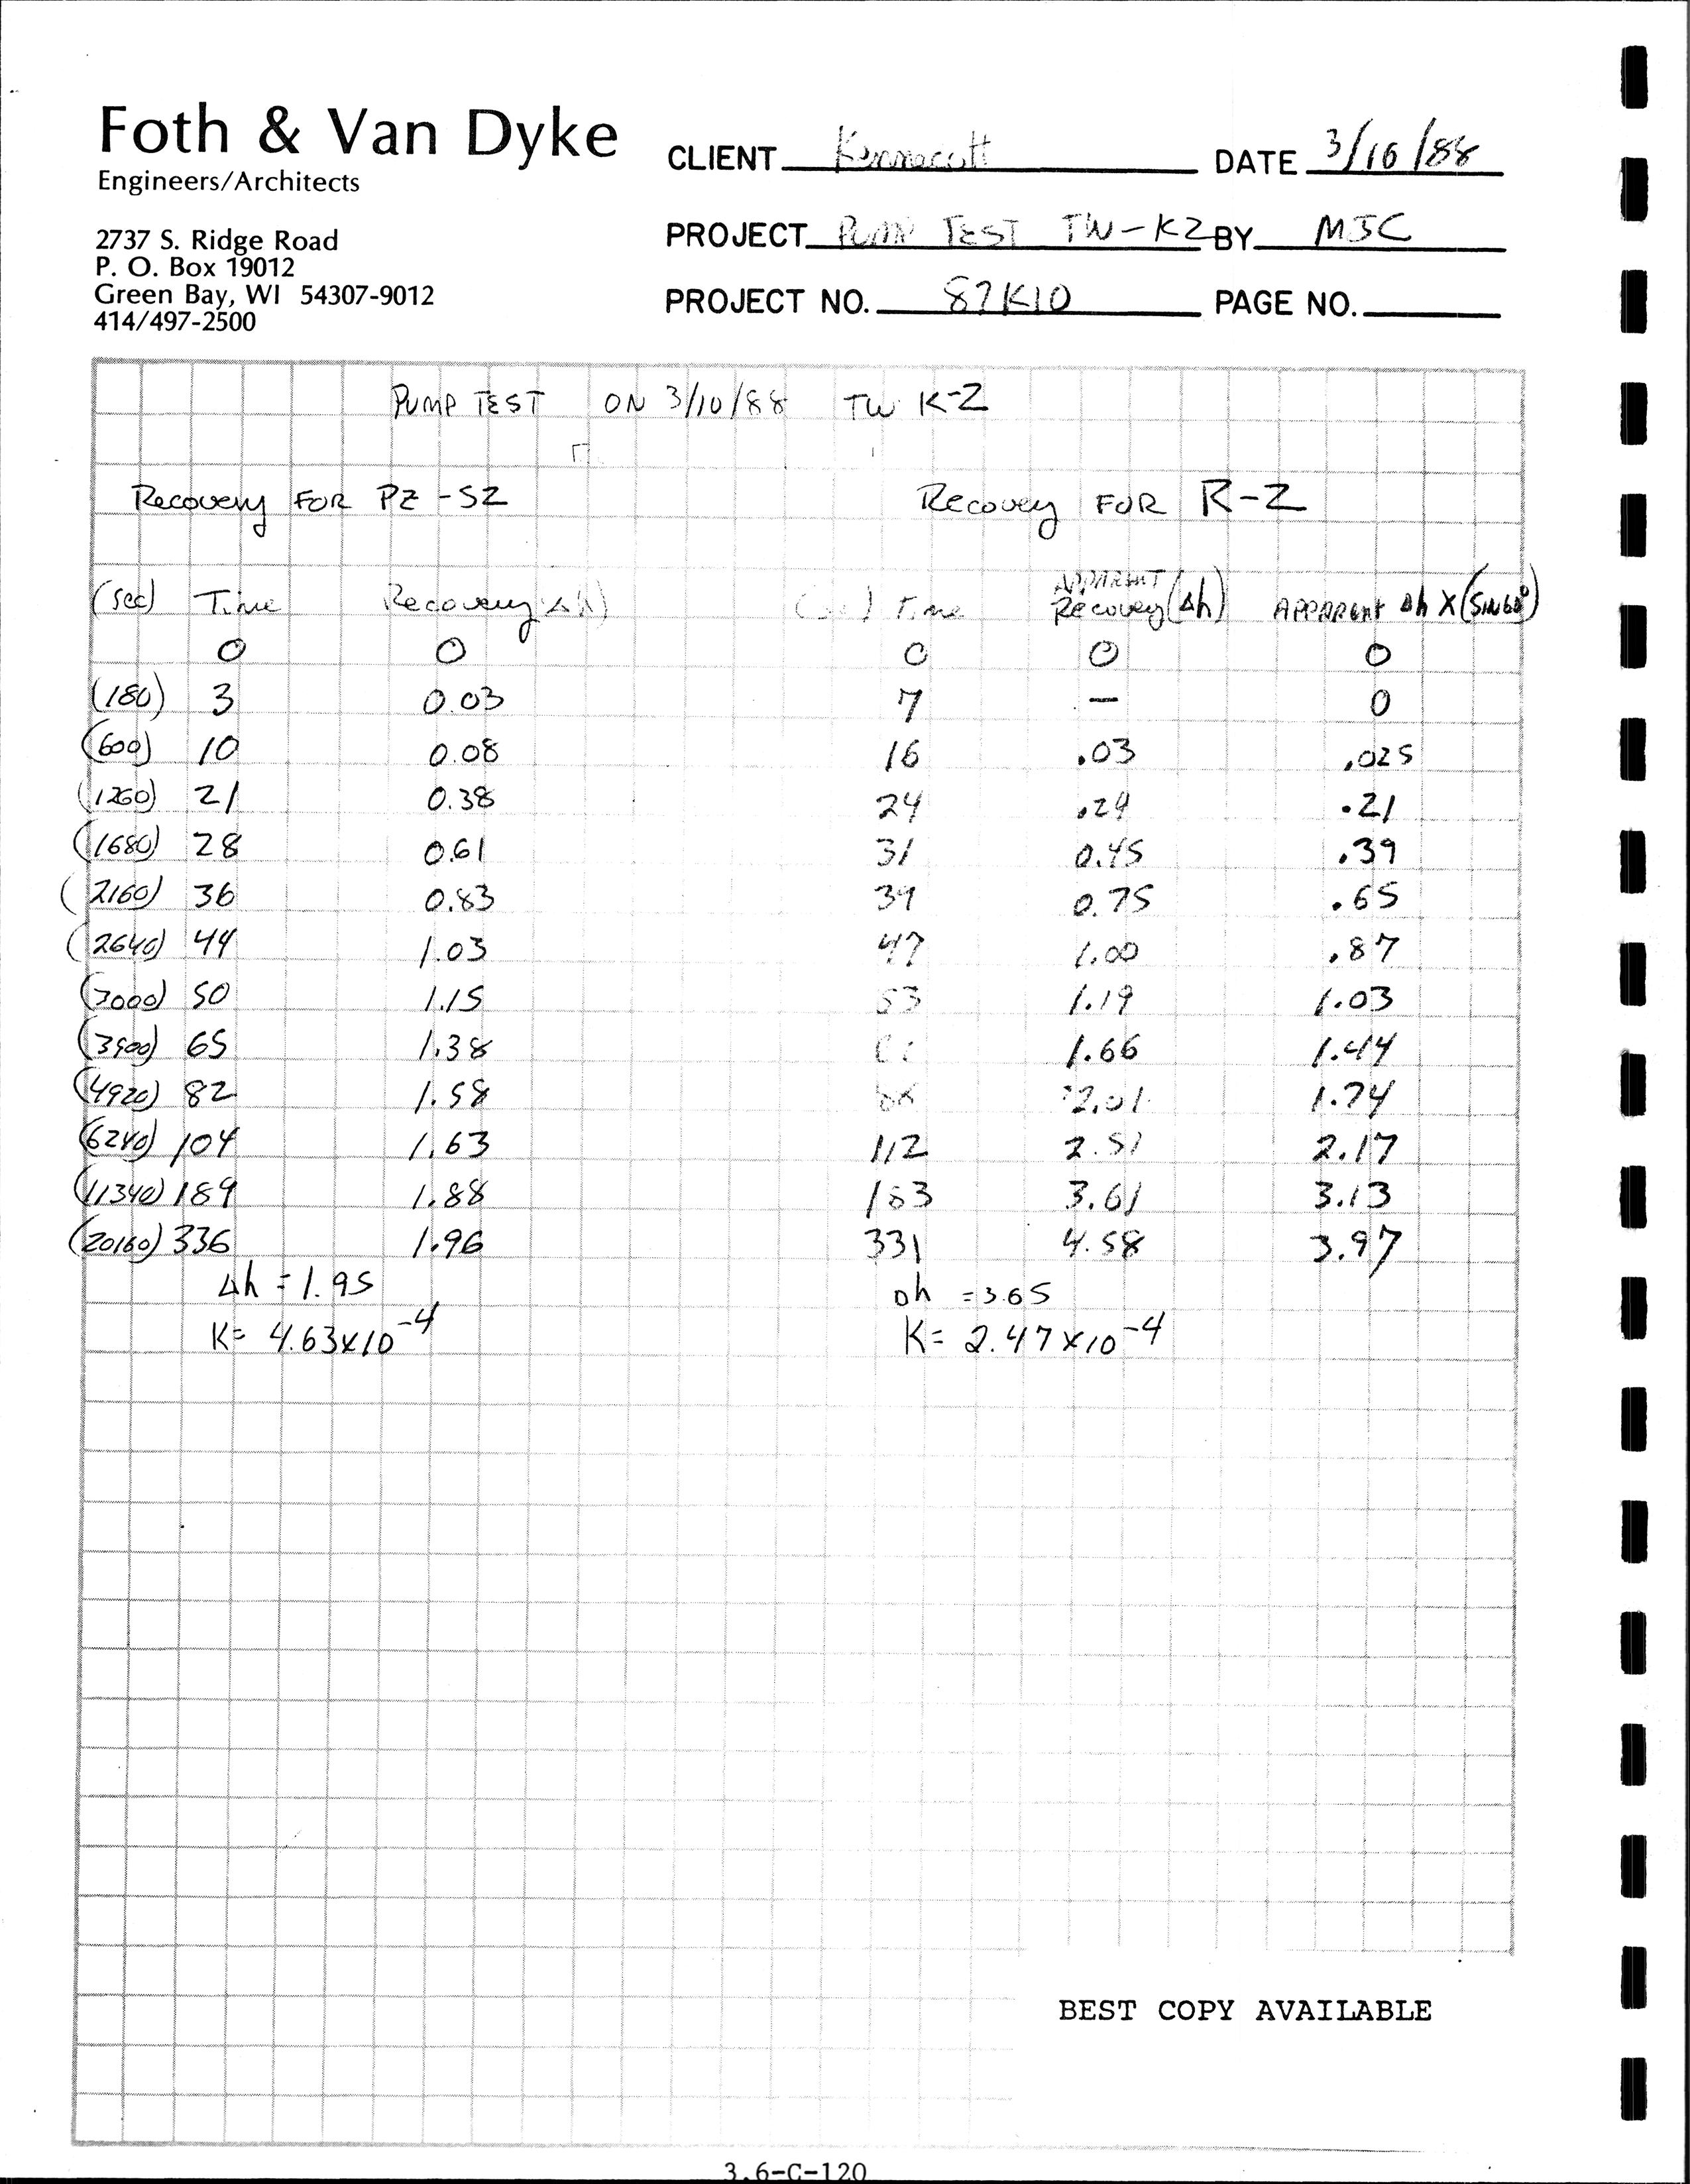 Foth & Van Dyke
Engineers/Architects
2737 S. Ridge Road
P. O. Box 19012
Green Bay, WI 54307-9012
414/497-2500
CLIENT Kennecott DATE 3/16/88
PROJECT PUMP TEST TW-K2 BY MJC
PROJECT NO. 87K10 PAGE NO.
PUMP TEST ON 3/10/88 TW K-2
Recovery FOR PZ-S2 Recovery FOR R-2
(sec) Time Recovery (Δh) Time APPARENT Recovery (Δh) APPARENT Δh X (SIN60°)
0 0 0 0 0
(180) 3 0.03 7 — 0
(600) 10 0.08 16 .03 .025
(1260) 21 0.38 24 .24 .21
(1680) 28 0.61 31 0.45 .39
(2160) 36 0.83 39 0.75 .65
(2640) 44 1.03 47 1.00 .87
(3000) 50 1.15 53 1.19 1.03
(3900) 65 1.38 1.66 1.44
(4920) 82 1.58 2.01 1.74
(6240) 104 1.63 112 2.51 2.17
(11340) 189 1.88 183 3.61 3.13
(20160) 336 1.96 331 4.58 3.97
Δh = 1.95 Δh = 3.65
K = 4.63x10-4 K = 2.47x10-4
BEST COPY AVAILABLE
3.6-C-120